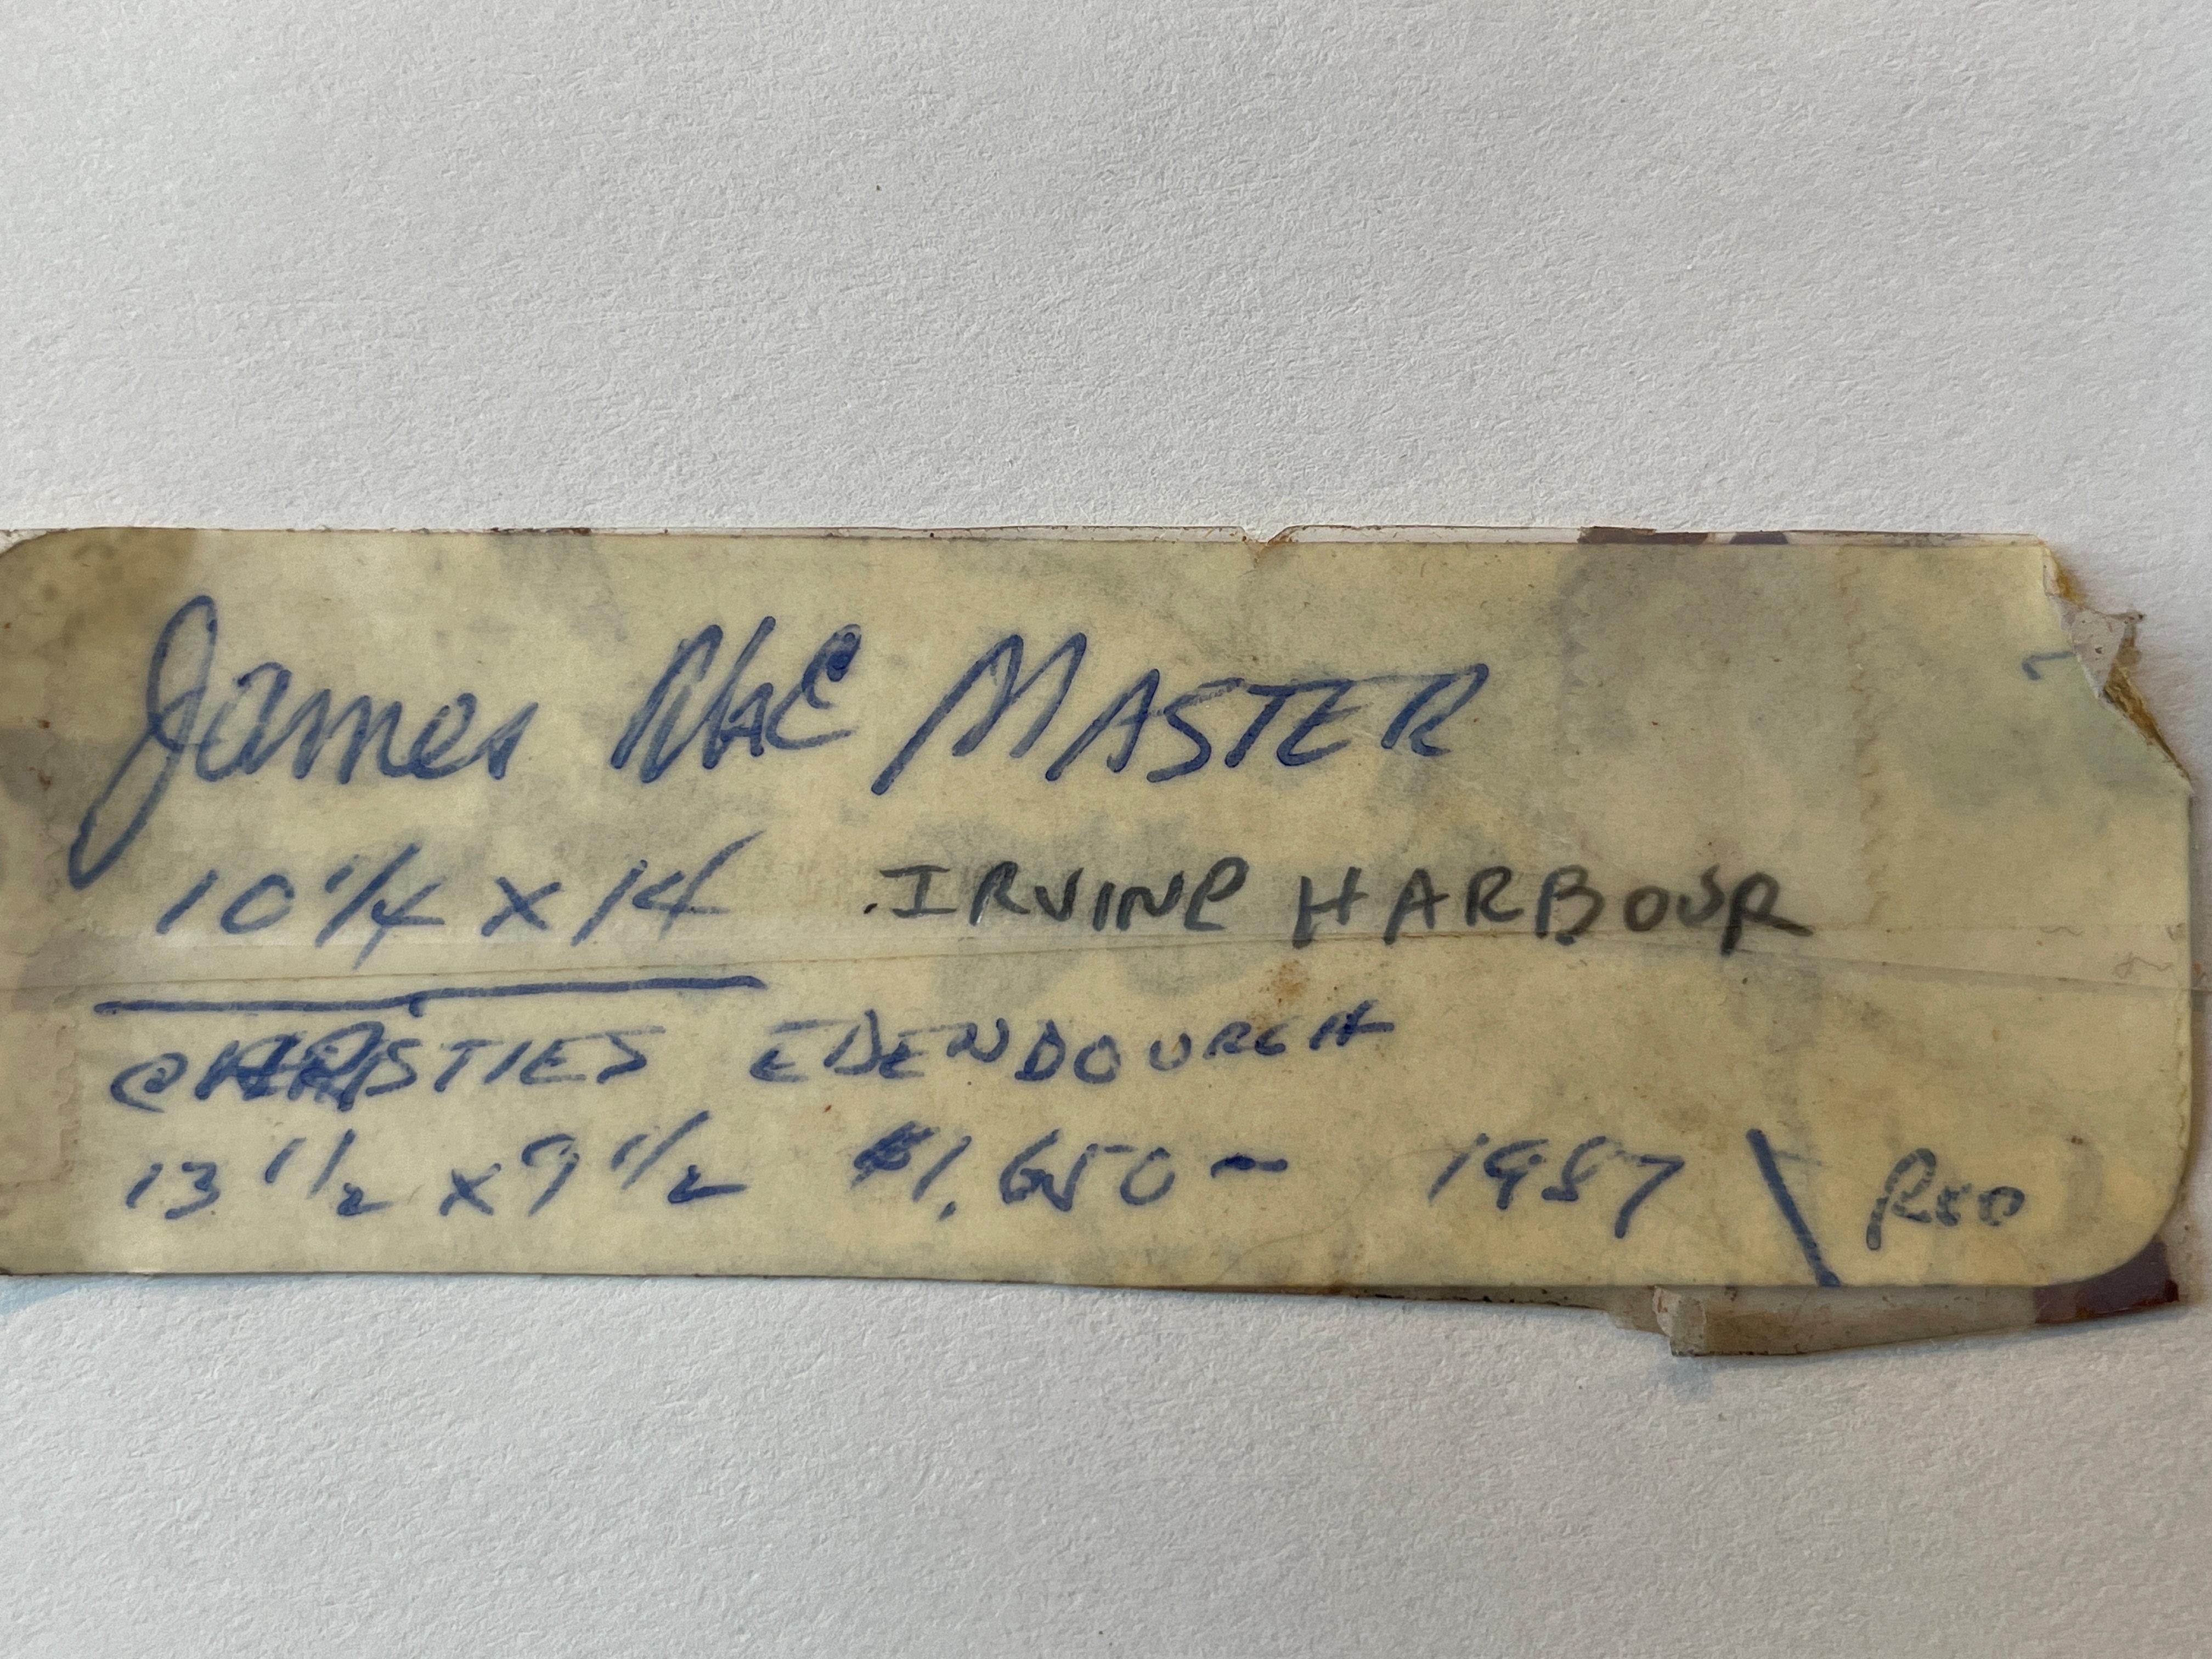 James MAC MASTER
10 1/4 x 14 IRVINE HARBOUR
CHRISTIES EDENDOURGH
13 1/2 x 9 1/2 $1,650 – 1987 \